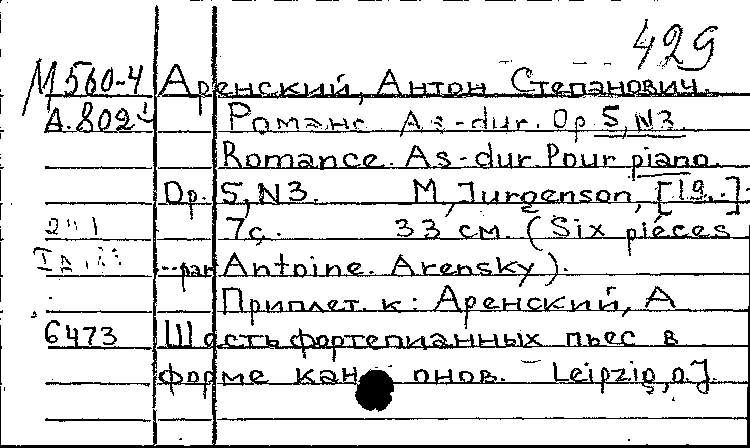 429
М560-4 Аренский, Антон Степанович.
А.802 Романс As-dur. Op 5, N3.
Romance. As-dur. Pour piano.
Op. 5, N3. M, Jurgenson, [19..].
7с. 33 см. (Six piéces
Antoine. Arensky).
Приплет. к: Аренский, А
6473 Шесть фортепианных пьес в
форме канонов. Leipzig, o.J.